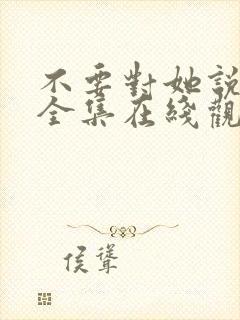 不要對她說
全集在綫觀
侯聳